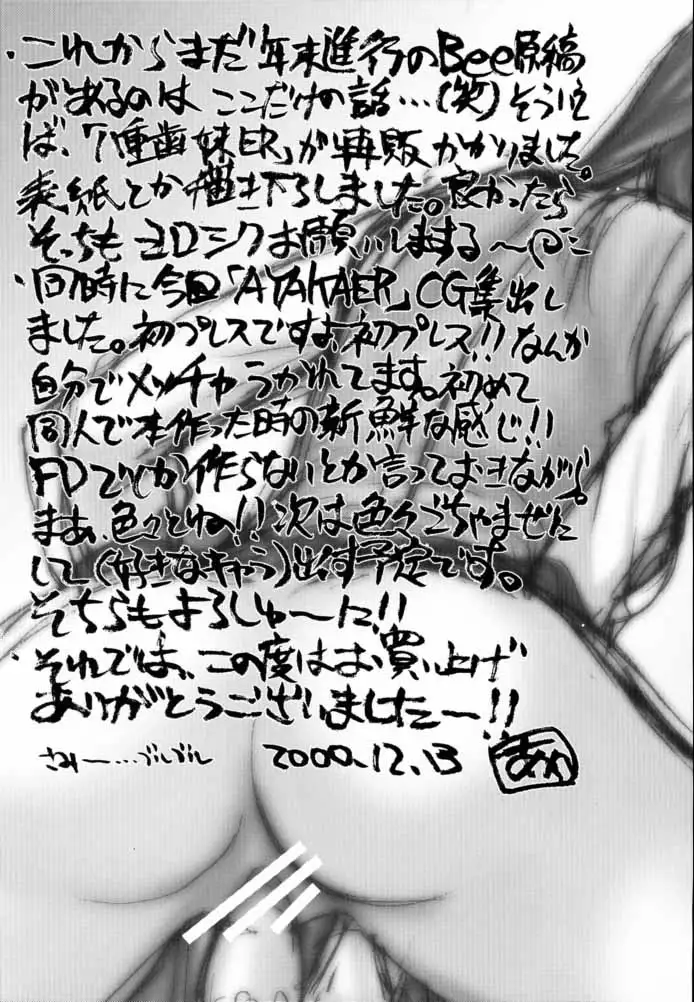 ・これからまだ年末進行のBee原稿
があるのは ここだけの話…(笑)そういえ
ば、「八重歯妹ER」が再販かかりました。
表紙とか描き下ろしました。良かったら
そっちもヨロシクお願いしまする〜
・同時に今回「AYAKAER」CG集出し
ました。初プレスですよ、初プレス!!なんか
自分でメッチャうかれてます。初めて
同人で本作った時の新鮮な感じ!!
FDでしか作らないとか言っておきながら。
まぁ、色々とね!!次は色々ごちゃまぜに
して(好きなキャラ)出す予定です。
そちらもよろしゅ〜に!!
・それでは、この度はお買い上げ
ありがとうございましたー!!
さみー…ブルブル 2000.12.13